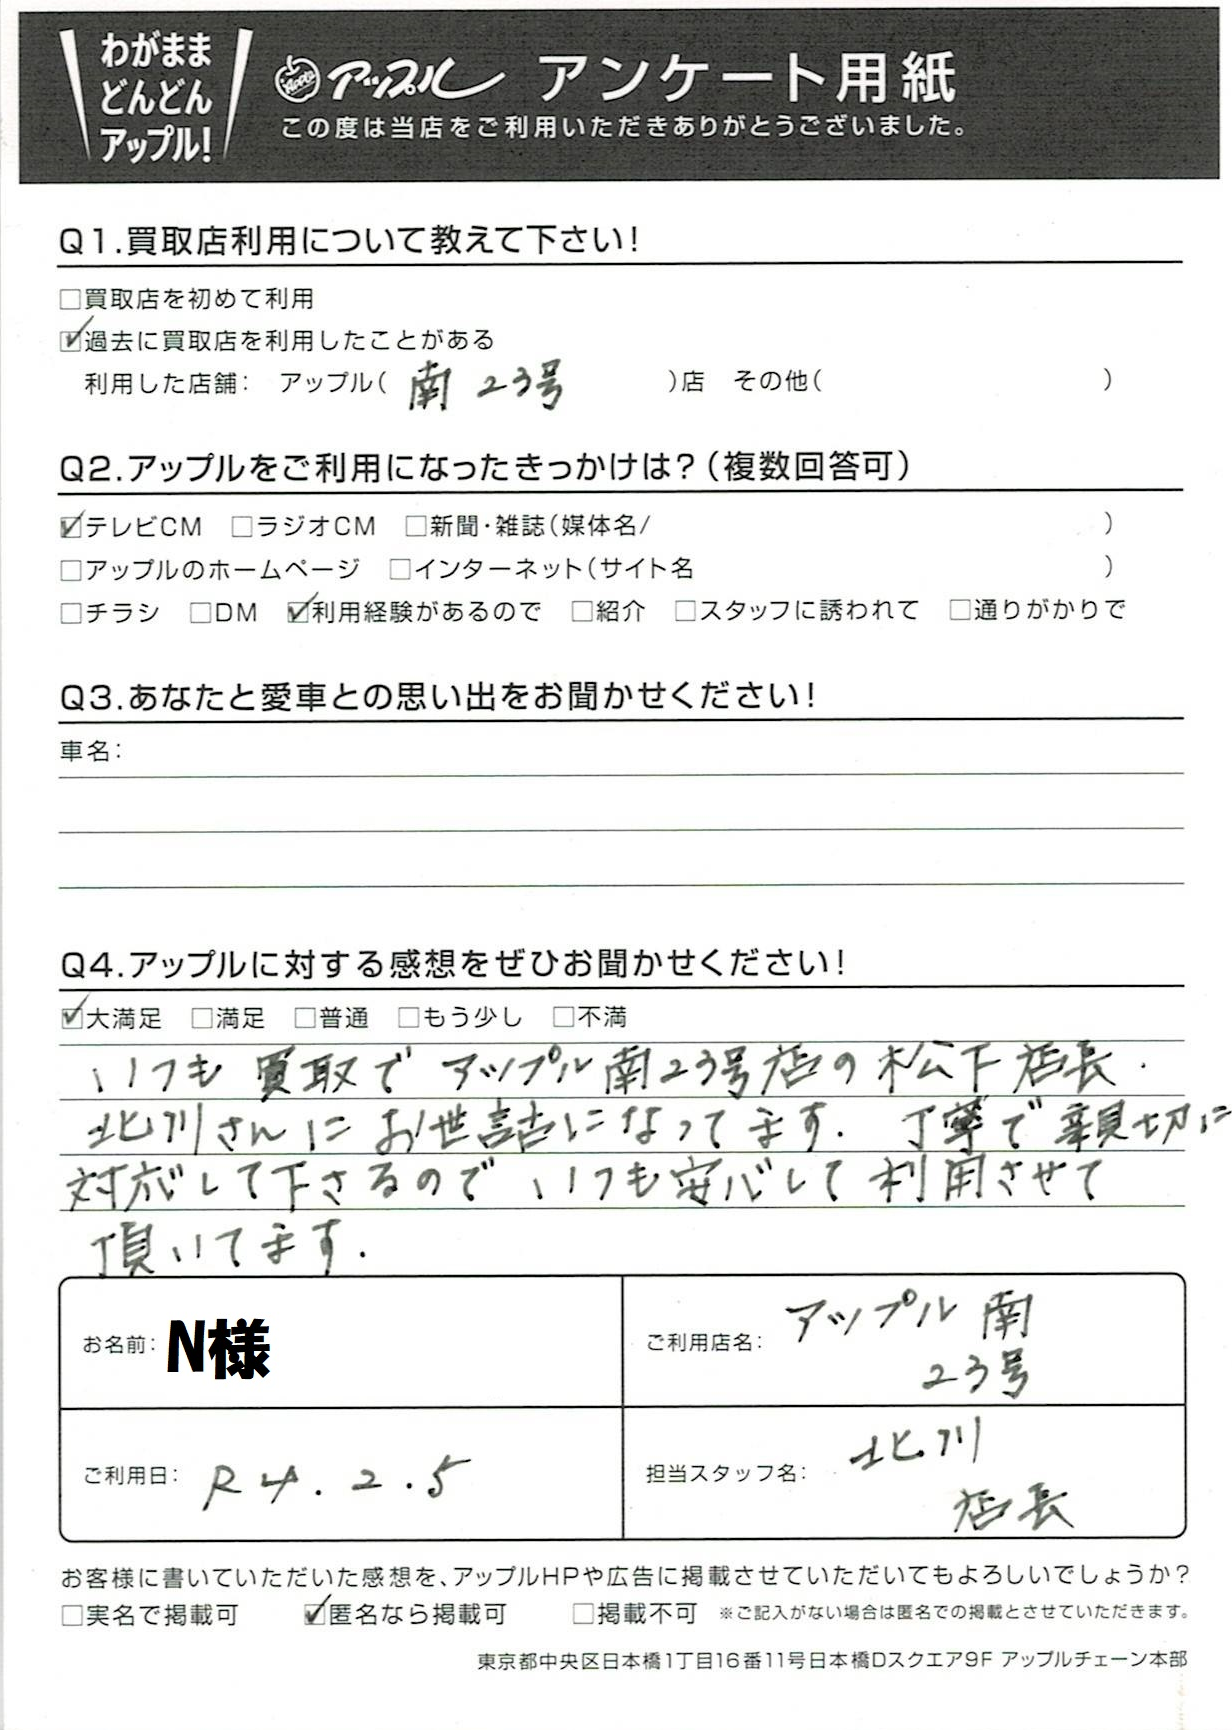 わがまま
どんどん
アップル!
Apple アップル アンケート用紙
この度は当店をご利用いただきありがとうございました。
Q1.買取店利用について教えて下さい!
□買取店を初めて利用
☑過去に買取店を利用したことがある
利用した店舗: アップル( 南23号 )店 その他( )
Q2.アップルをご利用になったきっかけは?(複数回答可)
☑テレビCM □ラジオCM □新聞・雑誌(媒体名/ )
□アップルのホームページ □インターネット(サイト名 )
□チラシ □DM ☑利用経験があるので □紹介 □スタッフに誘われて □通りがかりで
Q3.あなたと愛車との思い出をお聞かせください!
車名:
Q4.アップルに対する感想をぜひお聞かせください!
☑大満足 □満足 □普通 □もう少し □不満
いつも買取でアップル南23号店の松下店長.
北川さんにお世話になってます. 丁寧で親切に
対応して下さるのでいつも安心して利用させて
頂いてます.
お名前: N様
ご利用店名: アップル南
23号
ご利用日: R4.2.5
担当スタッフ名: 北川
店長
お客様に書いていただいた感想を、アップルHPや広告に掲載させていただいてもよろしいでしょうか?
□実名で掲載可 ☑匿名なら掲載可 □掲載不可 ※ご記入がない場合は匿名での掲載とさせていただきます。
東京都中央区日本橋1丁目16番11号日本橋Dスクエア9F アップルチェーン本部